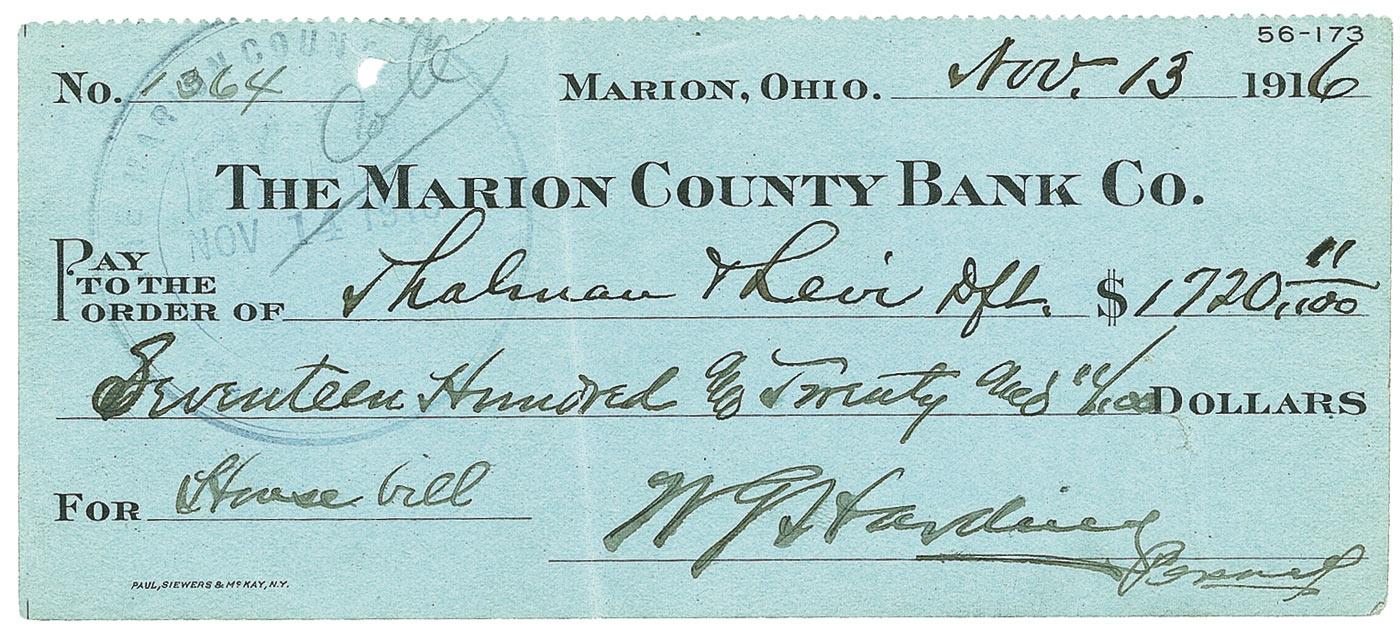 56-173
No. 1364 MARION, OHIO. Nov. 13 1916
THE MARION COUNTY BANK CO.
NOV 14 1916
PAY TO THE ORDER OF Thalman & Levi Dft. $1720.11/100
Seventeen Hundred & Twenty And 11/100 DOLLARS
FOR House bill
W G Harding
Personal
PAUL, SIEWERS & McKAY, N.Y.